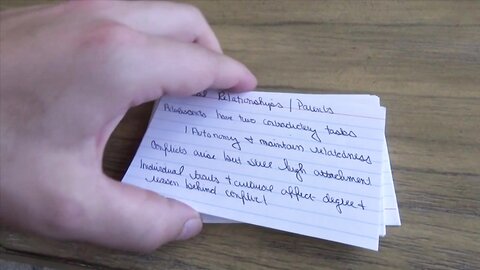 al Relationships / Parents
Adolescents have two contradictory tasks
1 Autonomy & maintain relatedness
Conflicts arise but still high attachment
Individual traits & cultural affect degree &
reason behind conflict